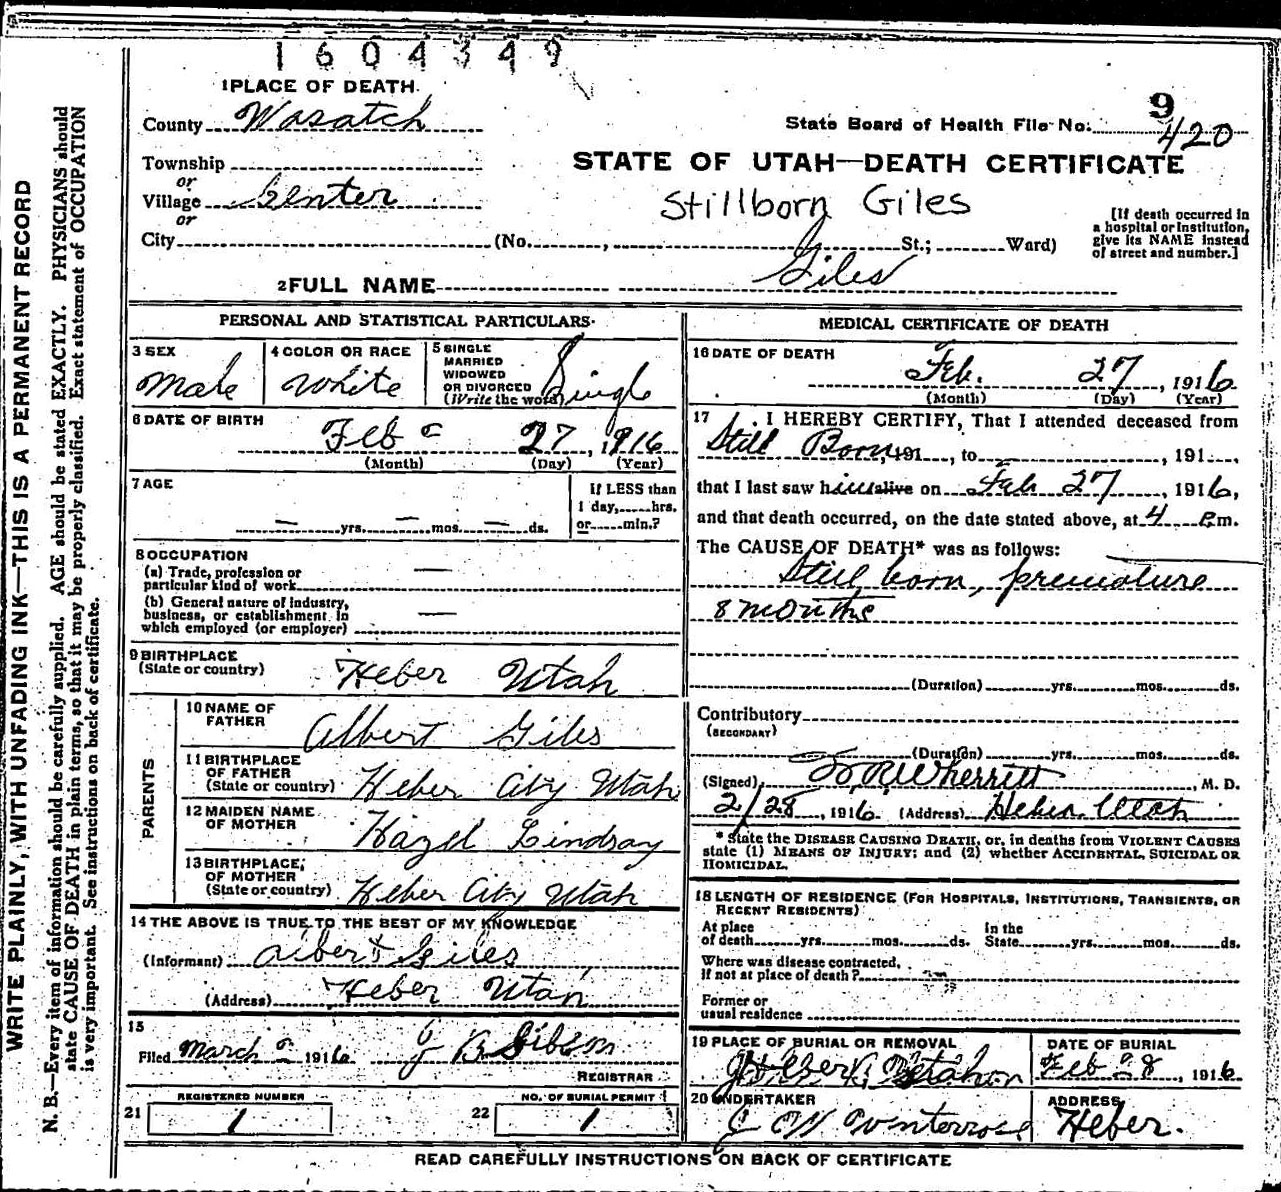 1604349
1 PLACE OF DEATH.
County Wasatch
Township
or
Village Center
or
City (No. , St.; Ward)
State Board of Health File No. 9
420
STATE OF UTAH—DEATH CERTIFICATE
Stillborn Giles
[If death occurred in
a hospital or institution,
give its NAME instead
of street and number.]
2 FULL NAME Giles
PERSONAL AND STATISTICAL PARTICULARS
3 SEX
Male
4 COLOR OR RACE
White
5 SINGLE
MARRIED
WIDOWED
OR DIVORCED
(Write the word) Single
6 DATE OF BIRTH
Feb 27, 1916
(Month) (Day) (Year)
7 AGE
— yrs. — mos. — ds.
If LESS than
1 day, hrs.
or min.?
8 OCCUPATION
(a) Trade, profession or
particular kind of work —
(b) General nature of industry,
business, or establishment in
which employed (or employer) —
9 BIRTHPLACE
(State or country) Heber Utah
PARENTS
10 NAME OF
FATHER Albert Giles
11 BIRTHPLACE
OF FATHER
(State or country) Heber City Utah
12 MAIDEN NAME
OF MOTHER Hazel Lindsay
13 BIRTHPLACE
OF MOTHER
(State or country) Heber City Utah
14 THE ABOVE IS TRUE TO THE BEST OF MY KNOWLEDGE
(Informant) Albert Giles
(Address) Heber Utah
15
Filed March 1916 J B Gibson
REGISTRAR
REGISTERED NUMBER
21 1
NO. OF BURIAL PERMIT
22 1
MEDICAL CERTIFICATE OF DEATH
16 DATE OF DEATH
Feb. 27, 1916
(Month) (Day) (Year)
17 I HEREBY CERTIFY, That I attended deceased from
Still Born, 191 , to , 191 ,
that I last saw him alive on Feb 27, 1916,
and that death occurred, on the date stated above, at 4 P.m.
The CAUSE OF DEATH* was as follows:
Still born, premature
8 months
(Duration) yrs. mos. ds.
Contributory
(SECONDARY)
(Duration) yrs. mos. ds.
(Signed) Wherritt, M. D.
2/28, 1916 (Address) Heber Utah
* State the DISEASE CAUSING DEATH, or, in deaths from VIOLENT CAUSES
state (1) MEANS OF INJURY; and (2) whether ACCIDENTAL, SUICIDAL OR
HOMICIDAL.
18 LENGTH OF RESIDENCE (FOR HOSPITALS, INSTITUTIONS, TRANSIENTS, OR
RECENT RESIDENTS)
At place
of death yrs. mos. ds.
In the
State yrs. mos. ds.
Where was disease contracted,
if not at place of death?
Former or
usual residence
19 PLACE OF BURIAL OR REMOVAL
Heber Utah
DATE OF BURIAL
Feb 28, 1916
20 UNDERTAKER
J W
ADDRESS
Heber.
READ CAREFULLY INSTRUCTIONS ON BACK OF CERTIFICATE
WRITE PLAINLY, WITH UNFADING INK—THIS IS A PERMANENT RECORD
N. B.—Every item of information should be carefully supplied. AGE should be stated EXACTLY. PHYSICIANS should
state CAUSE OF DEATH in plain terms, so that it may be properly classified. Exact statement of OCCUPATION
is very important. See instructions on back of certificate.